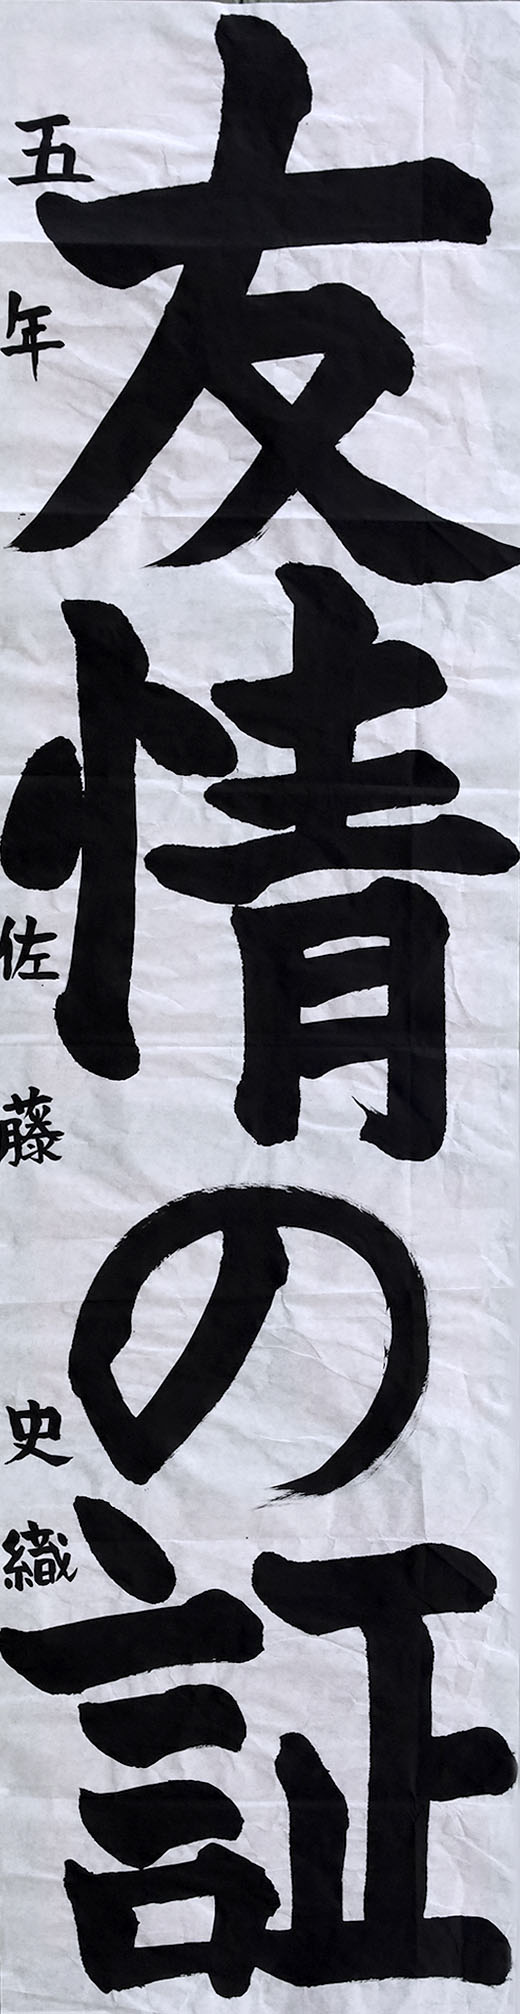 友情の証
五年 佐藤史織